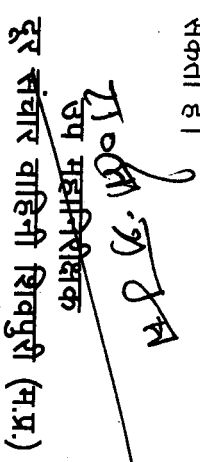 सकता है।
उप महानिरीक्षक
दूर संचार वाहिनी शिवपुरी (म.प्र.)